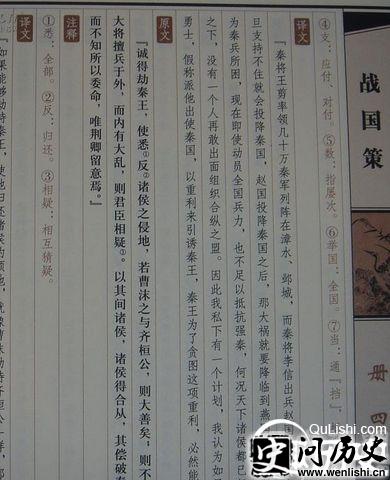 战国策
册四
④支：应付、对付。⑤数：指屡次。⑥举国：全国。⑦当：通『挡』，
译文
“秦将王翦率领几十万秦军列阵在漳水、邺城，而秦将李信出兵赵国
旦支持不住就会投降秦国，赵国投降秦国之后，那大祸就要降临到燕
为秦兵所困，现在即使动员全国兵力，也不足以抵抗强秦，何况天下诸侯都已
之下，没有一个人再敢出面组织合纵之盟。因此我私下有一个计划，我认为如
勇士，假称派他出使秦国，以重利来引诱秦王，秦王为了贪图这项重利，必然能
原文
『诚得劫秦王，使悉①反②诸侯之侵地，若曹沫之与齐桓公，则大善矣；则不
大将擅兵于外，而内有大乱，则君臣相疑③。以其间诸侯，诸侯得合从，其偿破秦
而不知所以委命，唯荆卿留意焉。』
注释
①悉：全部。②反：归还。③相疑：相互猜疑。
译文
“如果能够劫持秦王，使他归还诸侯的领地，就像曹沫劫持齐桓公一样，那
QuLishi.com
www.wenlishi.com
问历史